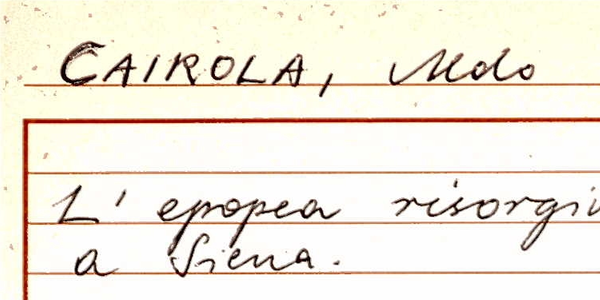 CAIROLA, Aldo
L' epopea risorgi
a Siena.